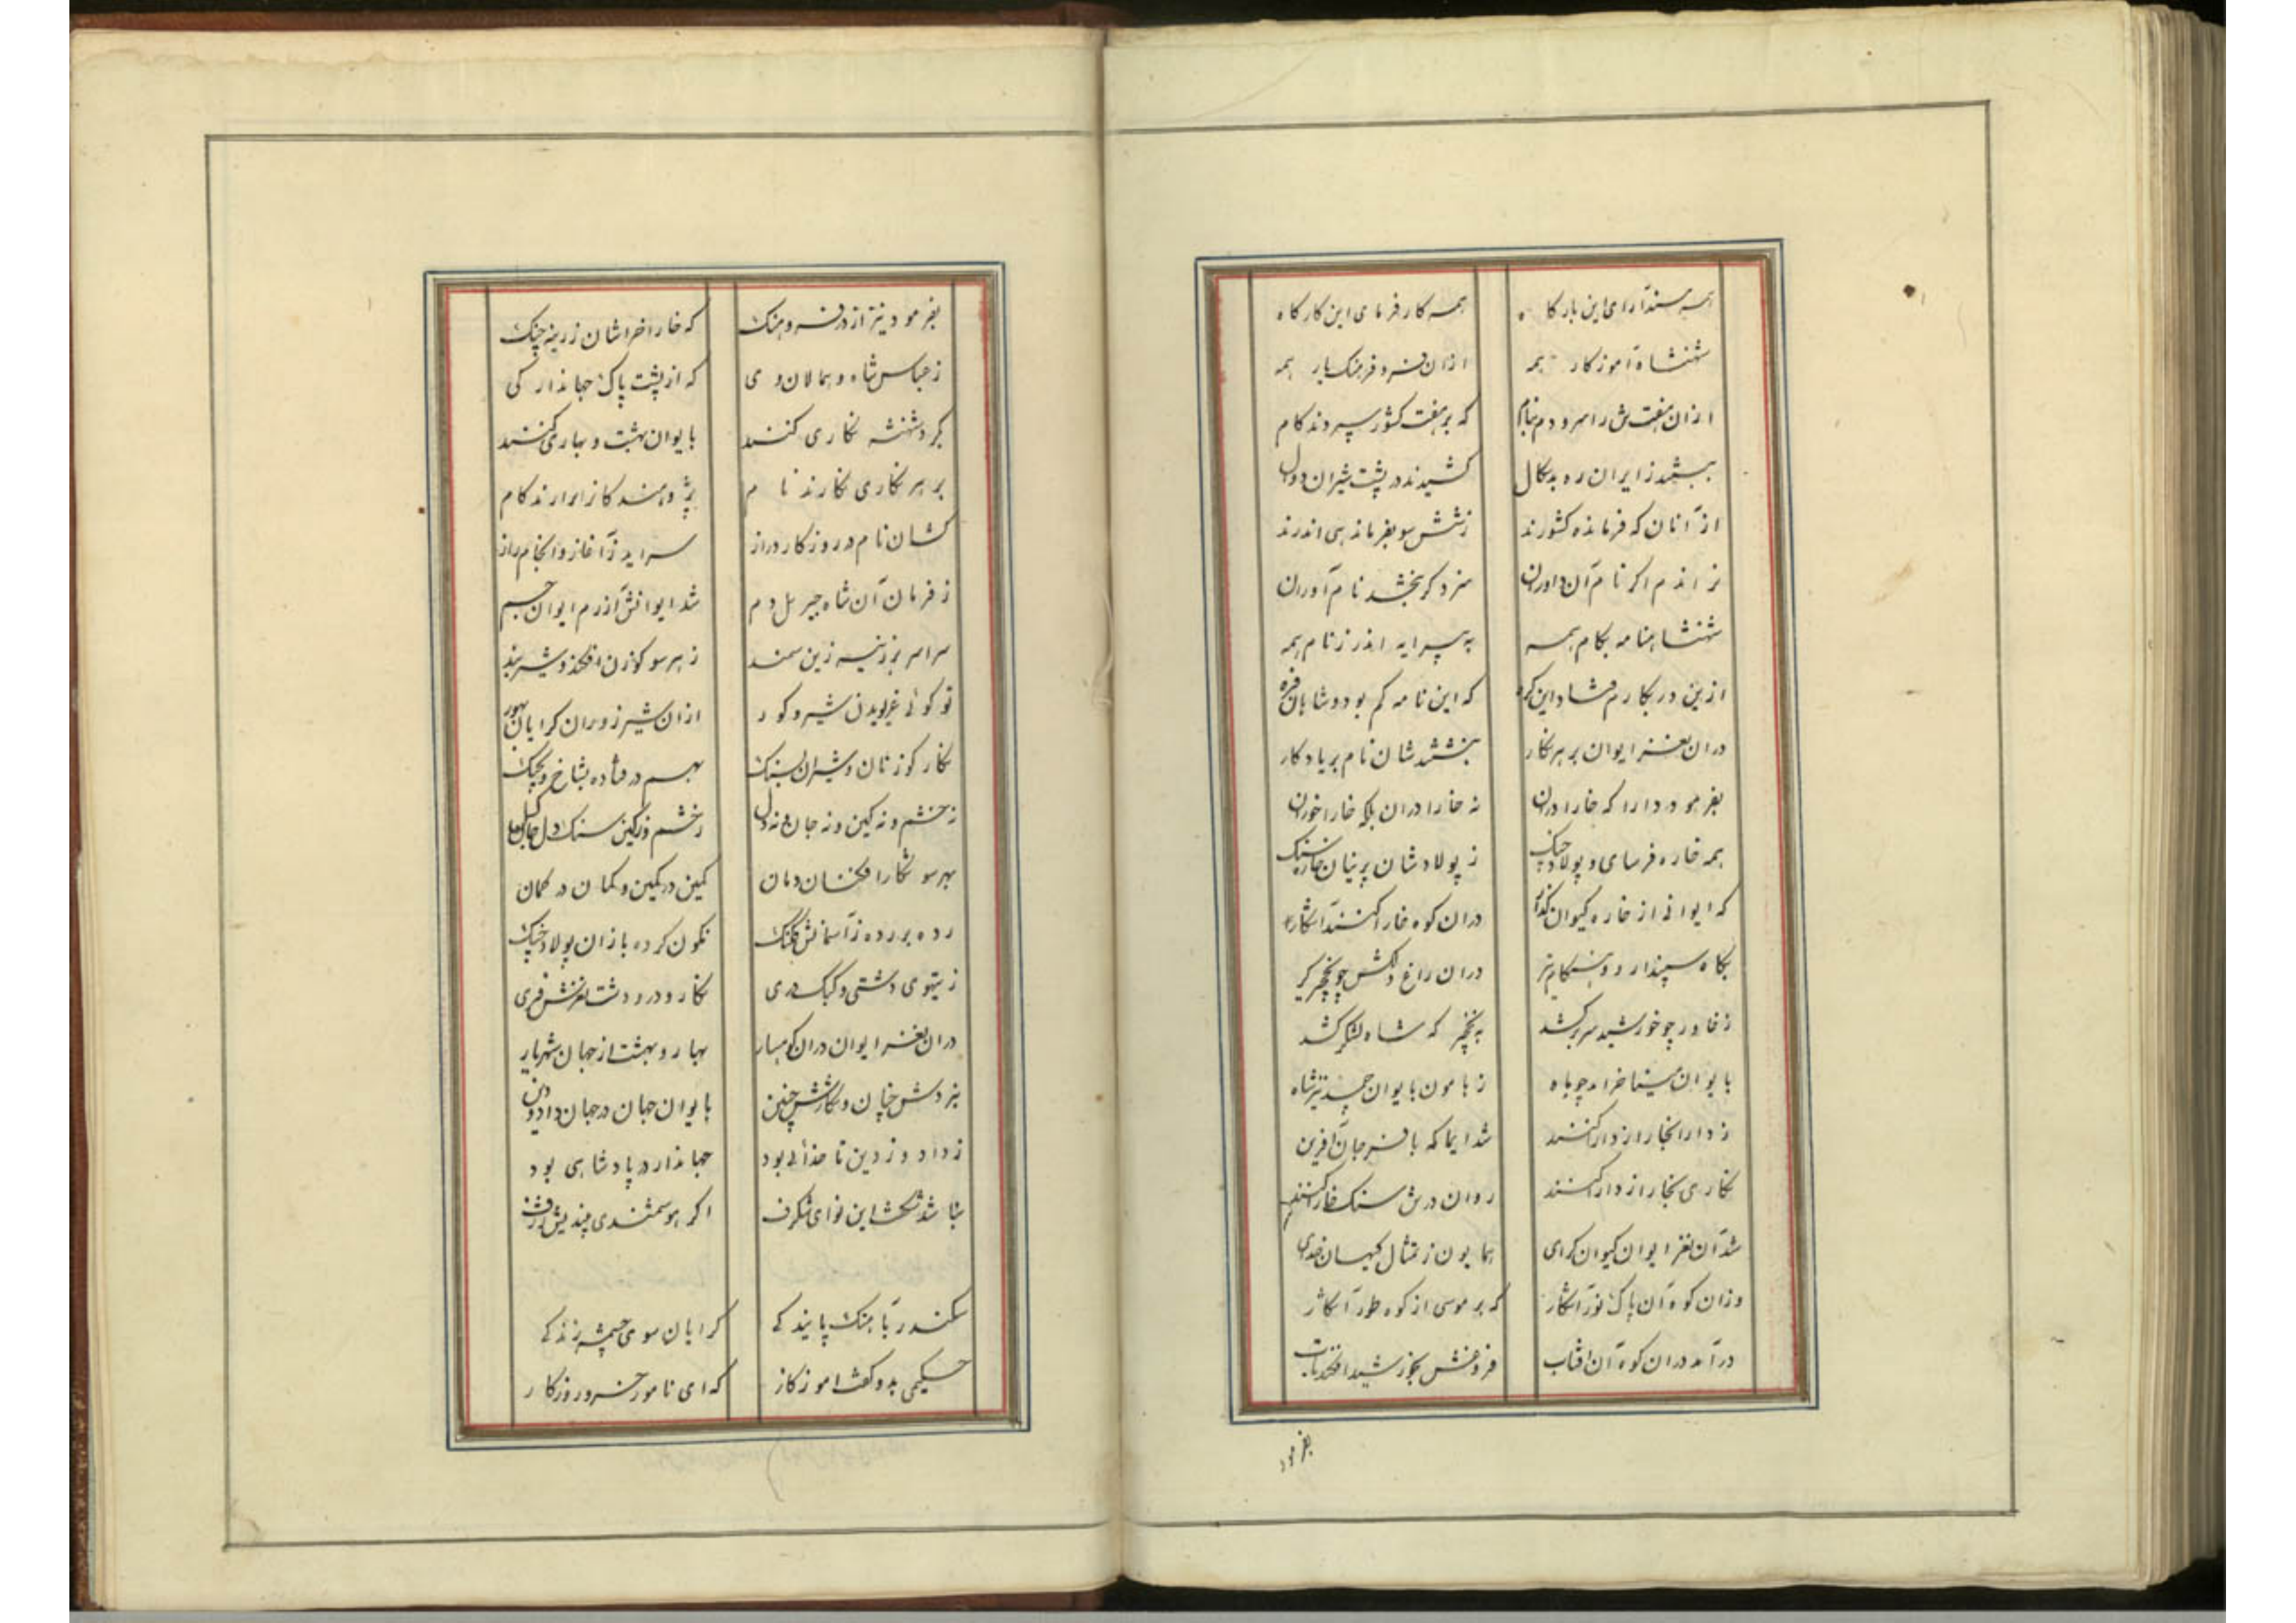 همه مسندآرای این بارکاه همه کارفرمای این کارکاه
شهنشاه آموزکار همه ازان فر و فرهنک یار همه
ازان هفت ش را سرودم بنام که بر هفت کشور سپردند کام
ببستند ز ایران ره بدسکال کشیدند در پشت شیران دوال
از آنان که فرمانده کشورند ز شش سو بفرماندهی اندرند
نراندم اکر نام آن داوران سزد کر ببخشند نام آوران
شهنشاهنامه بکام همه به پیرایه اندر ز نام همه
ازین در نکارم که این نامه کم بود و شاهان فره
دران نغز ایوان بر هر نکار نبشتند شان نام بر یادکار
بفرمود دارا که خارا دران نه خارا دران بلکه خارا خوران
همه خاره فرسای و پولاد چنک ز پولادشان پرنیان خاره سنک
که ایوانی از خاره کیوان کذار دران کوه خارا کنند آشکار
بکاه سپندار و هنکام تیر دران راغ دلکش چو نخچیرکیر
ز خاور چو خورشید سر برکشد به نخچیر که شاه لشکر کشد
بایوان مینا خرامد چو ماه ز هامون بایوان چمد نیز شاه
ز دارا نکار از دارا کنند شد ایما که با فر جان آفرین
نکاری نکار از دارا کنند روان درش سنک خارا کنند
شد آن نغز ایوان کیوان کرای همایون ز تمثال کیهان خدای
وزان کوه آن پاک نور آشکار که بر موسی از کوه طور آشکار
درآمد دران کوه آن آفتاب فروغش بخورشید افکند تاب
بفرمود
بفرمود نیز از در فر و هنک که خارا خراشان زرینه چنک
ز عباس شاه و همالان وی که از پشت پاک جهاندار کی
بکرد شهنشه نکاری کنند بایوان بهشت و بهاری کنند
بر هر نکاری نکارند نام پژوهنده کانرا برارند کام
کشان نام در روزکار دراز سراید ز آغاز و انجام راز
ز فرمان آن شاه جبریل دم شد ایوانش آذرم ایوان جم
سراسر بر زینه زین سمند ز هر سو کوزن افکن و شیر بند
تو کوئی غریویدن شیر و کور ازان شیر زوران کرایان بهور
نکار کوزنان و شیران بسنک بهم در فتاده بشاخ و بچنک
نه خشم و نه کین و نه جان و نه دل ز خشم و ز کین سنک دل جان کسل
بهر سو شکارافکنان دمان کمین در کمین و کمان در کمان
رده بر رده ز آسمانش کلنک نکون کرده بازان پولاد چنک
ز تیهوی دشتی و کبک دری نکار و درود دشت نغزش فری
دران نغز ایوان دران کوهسار بهار و بهشت از جهان شهریار
نبردش چنان و شکارش چنین بایوان جهان در جهان داد و دین
ز داد و ز دین تا خدائی بود جهاندار در پادشاهی بود
بنا شد نخست این نوای شکرف اکر هوشمندی میندیش ژرف
سکندر بآهنک پایندکی کرایان سوی چشمه زندکی
حکیمی بدو کفت آموزکار که ای نامور خسرو روزکار